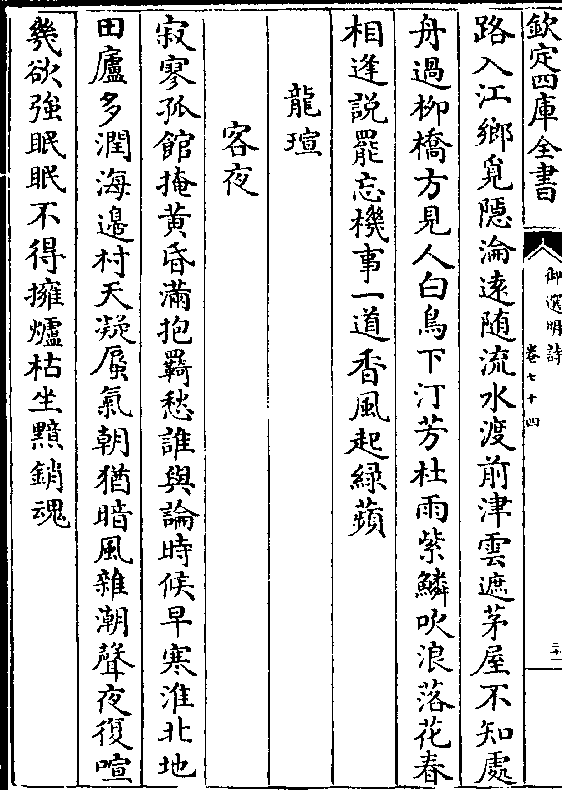 欽定四庫全書
御選明詩
卷七十四
路入江鄉覓隱淪遠隨流水渡前津雲遮茅屋不知處
舟過柳橋方見人白鳥下汀芳杜雨紫鱗吹浪落花春
相逢説罷忘機事一道香風起綠蘋
龍瑄
客夜
寂寥孤館掩黄昏滿抱羇愁誰與論時候早寒淮北地
田廬多潤海邉村天凝蜃氣朝猶暗風雜潮聲夜復喧
幾欲強眠眠不得擁爐枯坐黯銷魂